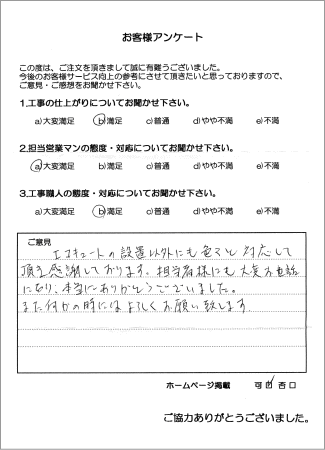 お客様アンケート
この度は、ご注文を頂きまして誠に有難うございました。
今後のお客様サービス向上の参考にさせて頂きたいと思っておりますので、
ご意見・ご感想をお聞かせ下さい。
1.工事の仕上がりについてお聞かせ下さい。
a)大変満足 b)満足 c)普通 d)やや不満 e)不満
2.担当営業マンの態度・対応についてお聞かせ下さい。
a)大変満足 b)満足 c)普通 d)やや不満 e)不満
3.工事職人の態度・対応についてお聞かせ下さい。
a)大変満足 b)満足 c)普通 d)やや不満 e)不満
ご意見
エコキュートの設置以外にも色々と対応して
頂き感謝しております。担当者様にも大変お世話
になり、本当にありがとうございました。
また何かの時にはよろしくお願い致します
ホームページ掲載 可 否
ご協力ありがとうございました。